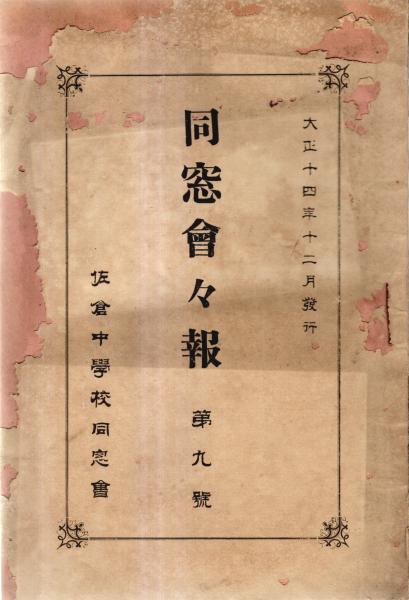 大正十四年十二月發行
同窓會々報 第九號
佐倉中學校同窓會